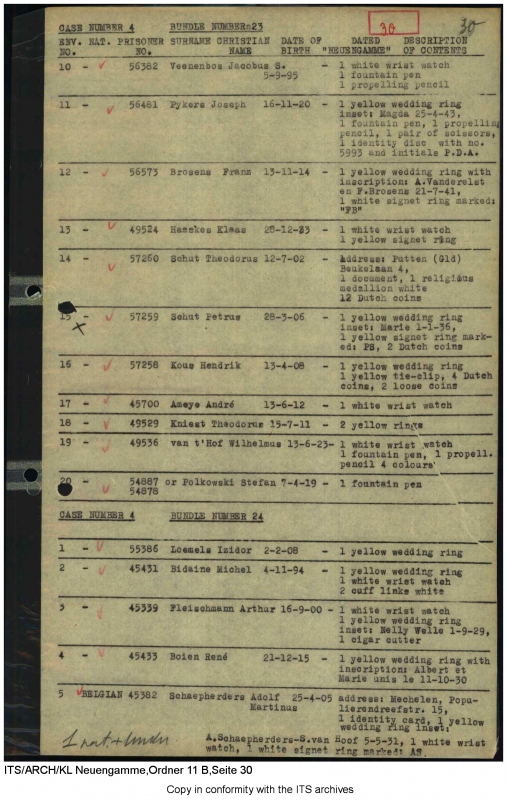 30 30
CASE NUMBER 4 BUNDLE NUMBERn23
ENV. NAT. PRISONER SURNAME CHRISTIAN DATE OF DATED DESCRIPTION
NO. NO. NAME BIRTH "NEUENGAMME" OF CONTENTS
10 - 56382 Veenenbos Jacobus S. - 1 white wrist watch
5-9-95 1 fountain pen
1 propelling pencil
11 - 56481 Pykers Joseph 16-11-20 - 1 yellow wedding ring
inset: Magda 25-4-43,
1 fountain pen, 1 propelling
pencil, 1 pair of scissors,
1 identity disc with no.
5993 and initials P.D.A.
12 - 56573 Brosens Franz 13-11-14 - 1 yellow wedding ring with
inscription: A.Vanderelst
en F.Brosens 21-7-41,
1 white signet ring marked:
"FB"
13 - 49524 Haeckes Klaas 28-12-23 - 1 white wrist watch
1 yellow signet ring
14 - 57260 Schut Theodorus 12-7-02 - Address: Putten (Gld)
Beukelaan 4,
1 document, 1 religidus
medallion white
12 Dutch coins
15 - 57259 Schut Petrus 28-3-06 - 1 yellow wedding ring
inset: Marie 1-1-36,
1 yellow signet ring mark-
ed: PS, 2 Dutch coins
16 - 57258 Kous Hendrik 13-4-08 - 1 yellow wedding ring
1 yellow tie-clip, 4 Dutch
coins, 2 loose coins
17 - 45700 Ameye André 13-6-12 - 1 white wrist watch
18 - 49529 Kniest Theodorus 15-7-11 - 2 yellow rings
19 - 49536 van t'Hof Wilhelmus 13-6-23- 1 white wrist watch
1 fountain pen, 1 propell.
pencil 4 colours
20 - 54887 or Polkowski Stefan 7-4-19 - 1 fountain pen
54878
CASE NUMBER 4 BUNDLE NUMBER 24
1 - 55386 Loemels Izidor 2-2-08 - 1 yellow wedding ring
2 - 45431 Bidaine Michel 4-11-94 - 1 yellow wedding ring
1 white wrist watch
2 cuff links white
3 - 45339 Fleischmann Arthur 16-9-00 - 1 white wrist watch
1 yellow wedding ring
inset: Nelly Welle 1-9-29,
1 cigar cutter
4 - 45433 Boien René 21-12-15 - 1 yellow wedding ring with
inscription: Albert et
Marie unis le 11-10-30
5 BELGIAN 45382 Schaepherders Adolf 25-4-05 address: Mechelen, Popu-
Martinus lierendreefstr. 15,
1 identity card, 1 yellow
wedding ring inset:
A.Schaepherders-S.van Hoof 5-5-31, 1 white wrist
watch, 1 white signet ring marked: AS.
ITS/ARCH/KL Neuengamme,Ordner 11 B,Seite 30
Copy in conformity with the ITS archives